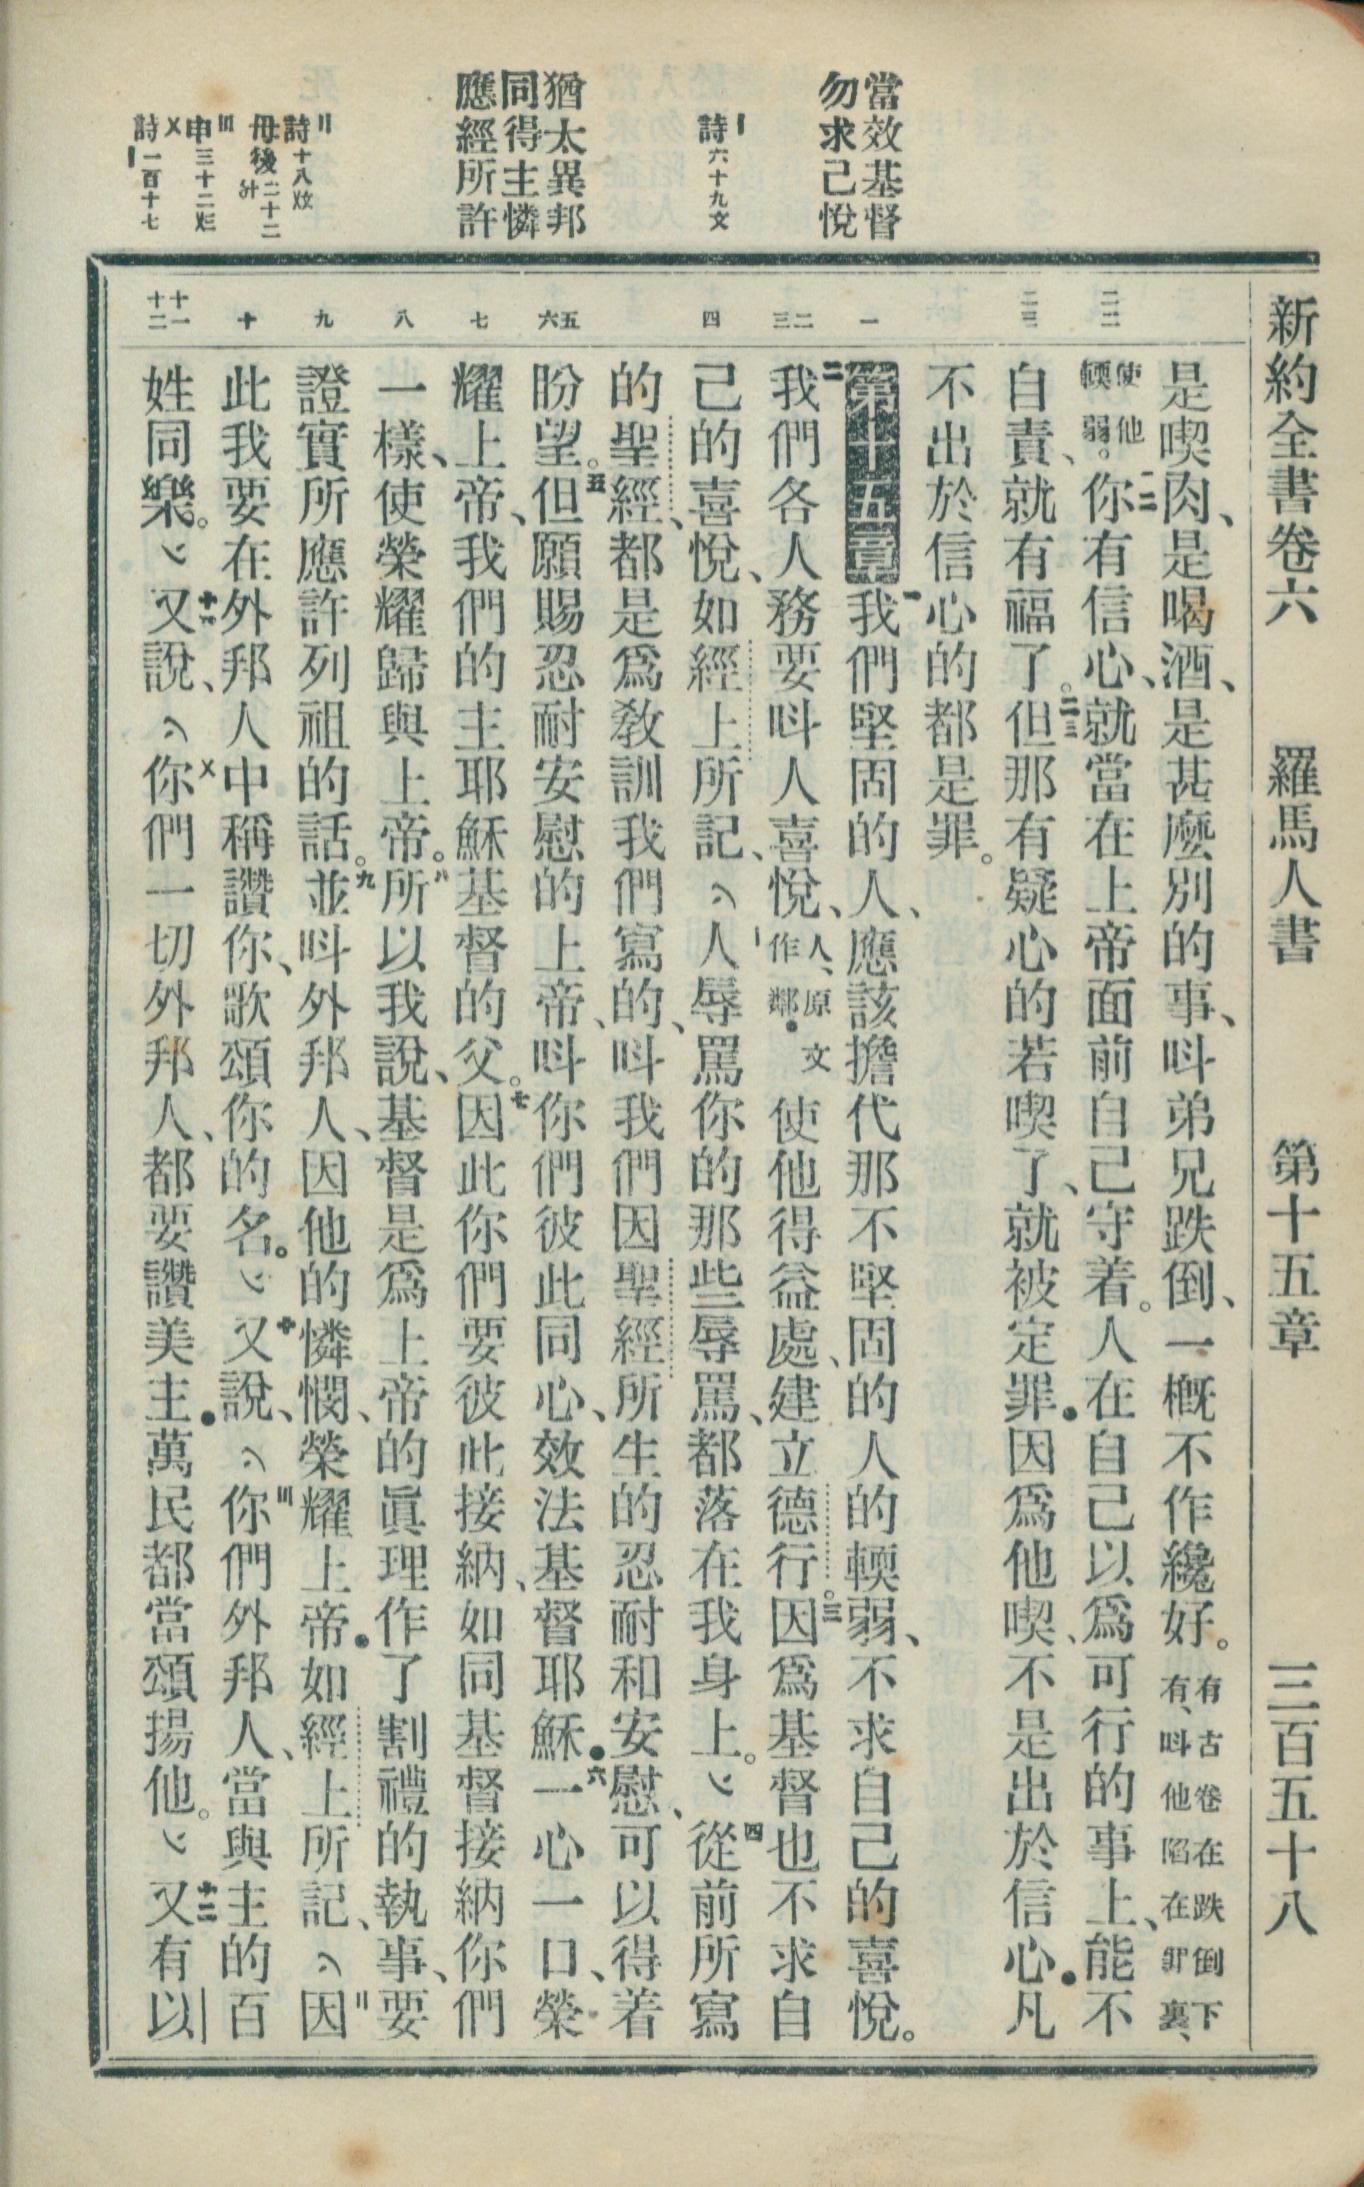 新約全書卷六　羅馬人書　第十五章　三百五十八
當效基督
勿求己悅
詩六十九
猶太異邦
同得主憐
應經所許
詩十八
母後二十二
申三十二
詩一百十七
二二
二三
一
二三
四
五六
七
八
九
十
十一十二
是喫肉、是喝酒、是甚麽別的事、呌弟兄跌倒、一概不作纔好。有古卷在跌倒下有、呌他陷在罪裏、
使他輭弱。二二你有信心、就當在上帝面前自己守着。人在自己以爲可行的事上、能不
自責、就有福了。二三但那有疑心的若喫了、就被定罪．因爲他喫、不是出於信心．凡
不出於信心的都是罪。
第十五章一我們堅固的人、應該擔代那不堅固的人的輭弱、不求自己的喜悅。
二我們各人務要呌人喜悅、人、原文作鄰．使他得益處、建立德行。三因爲基督也不求自
己的喜悅、如經上所記、人辱罵你的那些辱罵、都落在我身上。四從前所寫
的聖經、都是爲教訓我們寫的、呌我們因聖經所生的忍耐和安慰、可以得着
盼望。五但願賜忍耐安慰的上帝、呌你們彼此同心、效法基督耶穌．六一心一口、榮
耀上帝、我們的主耶穌基督的父。七因此你們要彼此接納、如同基督接納你們
一樣、使榮耀歸與上帝。八所以我說、基督是爲上帝的眞理作了割禮的執事、要
證實所應許列祖的話。九並呌外邦人、因他的憐憫、榮耀上帝．如經上所記、因
此我要在外邦人中稱讚你、歌頌你的名。十又說、你們外邦人、當與主的百
姓同樂。十一又說、你們一切外邦人、都要讚美主．萬民都當頌揚他。十二又有以